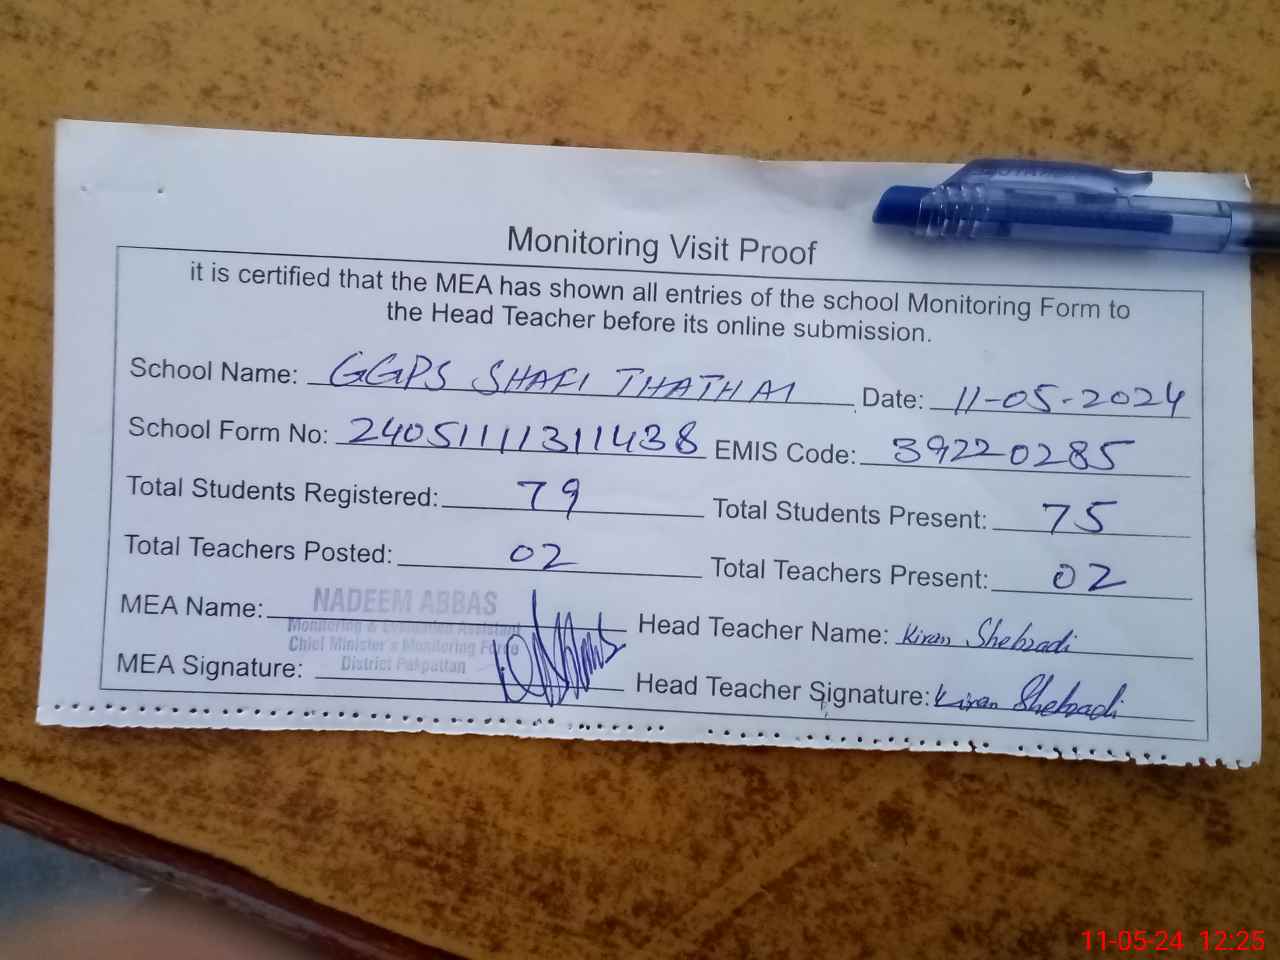 Monitoring Visit Proof
it is certified that the MEA has shown all entries of the school Monitoring Form to
the Head Teacher before its online submission.
School Name: GGPS SHAFI THATHAI Date: 11-05-2024
School Form No: 24051111311438 EMIS Code: 39220285
Total Students Registered: 79 Total Students Present: 75
Total Teachers Posted: 02 Total Teachers Present: 02
MEA Name: NADEEM ABBAS Head Teacher Name: Kiran Shehzadi
Monitoring & Evaluation Assistant
Chief Minister's Monitoring Force
District Pakpattan
MEA Signature: Head Teacher Signature: Kiran Shehzadi
11-05-24 12:25